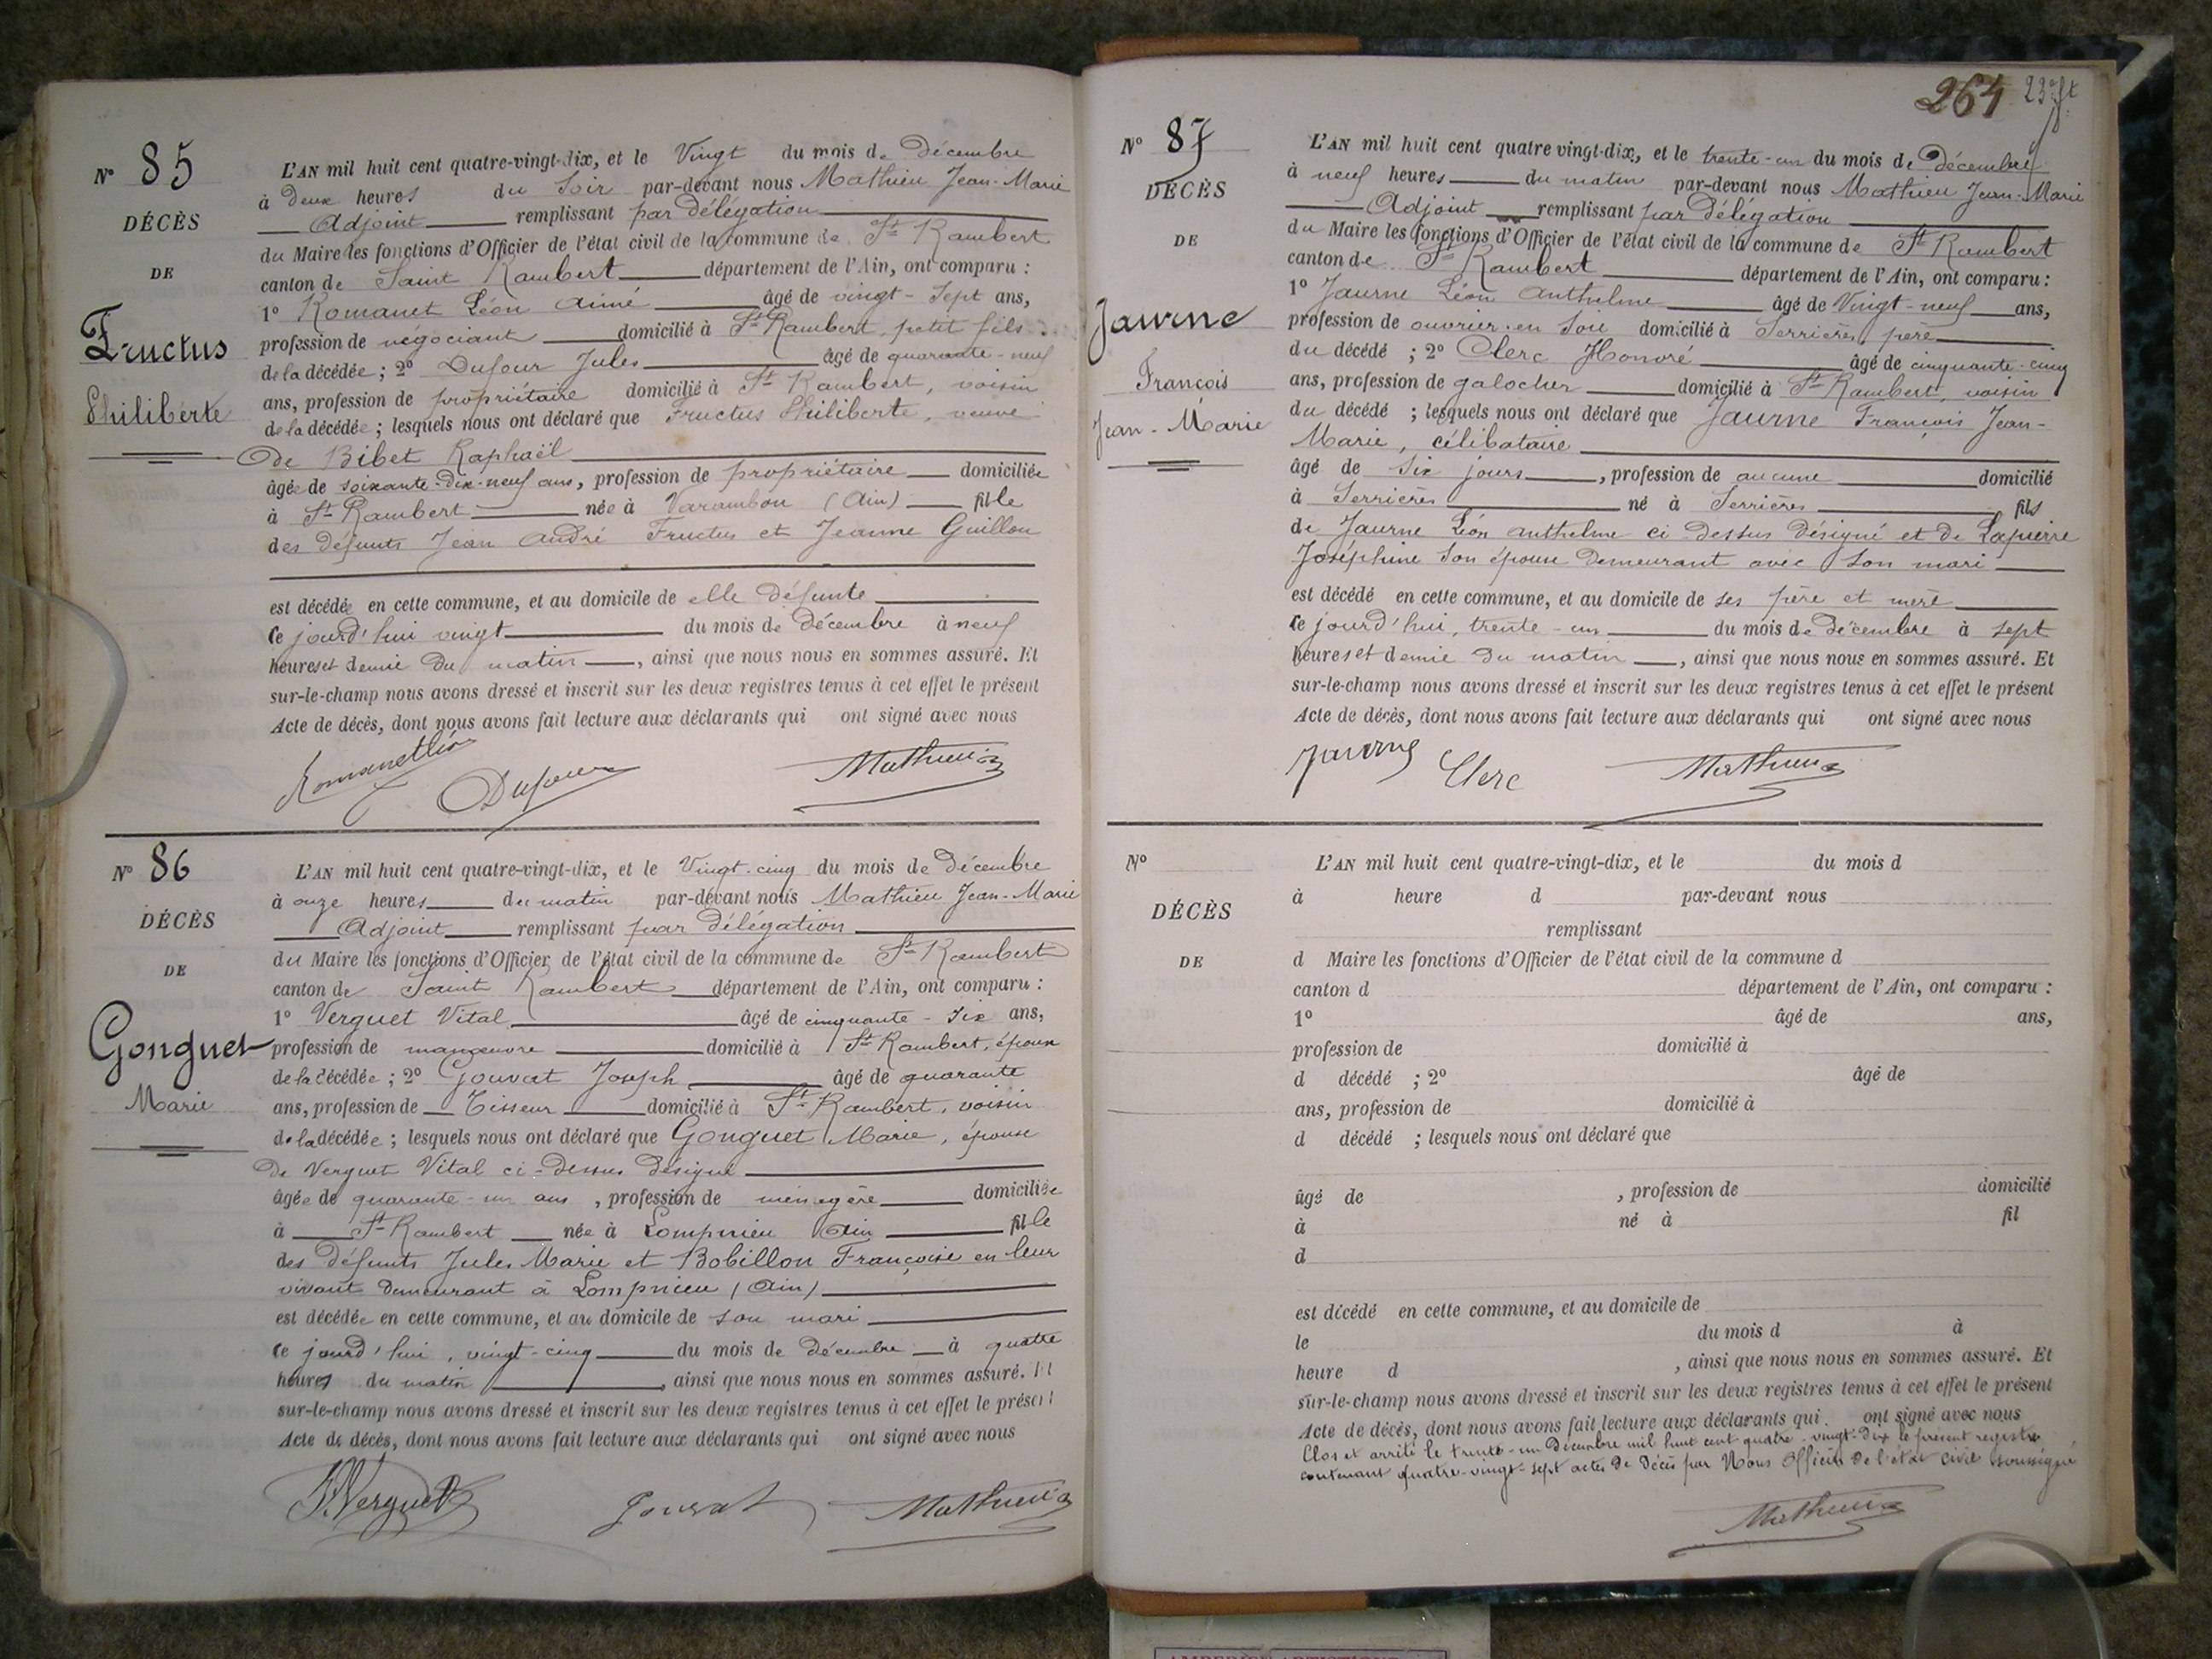 N° 85
DÉCÈS
DE
Fructus
Philiberte
L'AN mil huit cent quatre-vingt-dix, et le Vingt du mois de Décembre
à Deux heures du Soir par-devant nous Mathieu Jean-Marie
Adjoint remplissant par Délégation
du Maire les fonctions d'Officier de l'état civil de la commune de St Rambert
canton de Saint Rambert département de l'Ain, ont comparu :
1° Romanet Léon Aimé âgé de vingt-sept ans,
profession de négociant domicilié à St Rambert, petit fils
de la décédée ; 2° Dufour Jules âgé de quarante-neuf
ans, profession de propriétaire domicilié à St Rambert, voisin
de la décédée ; lesquels nous ont déclaré que Fructus Philiberte, veuve
De Bibet Raphaël
âgée de soixante-dix-neuf ans, profession de propriétaire domiciliée
à St Rambert née à Varambon (Ain) fille
des défunts Jean André Fructus et Jeanne Guillon
est décédée en cette commune, et au domicile de elle défunte
ce jourd'hui vingt du mois de Décembre à neuf
heures et demie du matin, ainsi que nous nous en sommes assuré. Et
sur-le-champ nous avons dressé et inscrit sur les deux registres tenus à cet effet le présent
Acte de décès, dont nous avons fait lecture aux déclarants qui ont signé avec nous
Romanet Léon Dufour Mathieu
N° 86
DÉCÈS
DE
Gonguet
Marie
L'AN mil huit cent quatre-vingt-dix, et le Vingt-cinq du mois de Décembre
à onze heures du matin par-devant nous Mathieu Jean-Marie
Adjoint remplissant par Délégation
du Maire les fonctions d'Officier de l'état civil de la commune de St Rambert
canton de Saint Rambert département de l'Ain, ont comparu :
1° Verguet Vital âgé de cinquante-six ans,
profession de manœuvre domicilié à St Rambert, époux
de la décédée ; 2° Gouvat Joseph âgé de quarante
ans, profession de Tisseur domicilié à St Rambert, voisin
de la décédée ; lesquels nous ont déclaré que Gonguet Marie, épouse
De Verguet Vital ci-dessus désigné
âgée de quarante-un ans, profession de ménagère domiciliée
à St Rambert née à Lompnieu Ain fille
des défunts Jules Marie et Bobillon Françoise en leur
vivant demeurant à Lompnieu (Ain)
est décédée en cette commune, et au domicile de son mari
ce jourd'hui, vingt-cinq du mois de décembre à quatre
heures du matin, ainsi que nous nous en sommes assuré. Et
sur-le-champ nous avons dressé et inscrit sur les deux registres tenus à cet effet le présent
Acte de décès, dont nous avons fait lecture aux déclarants qui ont signé avec nous
Verguet Gouvat Mathieu
264
N° 87
DÉCÈS
DE
Jaurne
François
Jean-Marie
L'AN mil huit cent quatre vingt-dix, et le trente-un du mois de Décembre
à neuf heures du matin par-devant nous Mathieu Jean-Marie
Adjoint remplissant par Délégation
du Maire les fonctions d'Officier de l'état civil de la commune de St Rambert
canton de St Rambert département de l'Ain, ont comparu :
1° Jaurne Léon Anthelme âgé de Vingt-neuf ans,
profession de ouvrier en Soie domicilié à Serrières, père
du décédé ; 2° Clerc Honoré âgé de cinquante-cinq
ans, profession de galocher domicilié à St Rambert, voisin
du décédé ; lesquels nous ont déclaré que Jaurne François Jean-
Marie, célibataire
âgé de Six jours, profession de aucune domicilié
à Serrières né à Serrières fils
de Jaurne Léon anthelme ci dessus désigné et de Lapierre
Joséphine son épouse Demeurant avec son mari
est décédé en cette commune, et au domicile de ses père et mère
ce jourd'hui, trente-un du mois de Décembre à sept
heures et demie du matin, ainsi que nous nous en sommes assuré. Et
sur-le-champ nous avons dressé et inscrit sur les deux registres tenus à cet effet le présent
Acte de décès, dont nous avons fait lecture aux déclarants qui ont signé avec nous
Jaurne Clerc Mathieu
N°
DÉCÈS
DE
L'AN mil huit cent quatre-vingt-dix, et le du mois d
à heure d par-devant nous
remplissant
d Maire les fonctions d'Officier de l'état civil de la commune d
canton d département de l'Ain, ont comparu :
1° âgé de ans,
profession de domicilié à
d décédé ; 2° âgé de
ans, profession de domicilié à
d décédé ; lesquels nous ont déclaré que
âgé de , profession de domicilié
à né à fil
d
est décédé en cette commune, et au domicile de
le du mois d à
heure d , ainsi que nous nous en sommes assuré. Et
sur-le-champ nous avons dressé et inscrit sur les deux registres tenus à cet effet le présent
Acte de décès, dont nous avons fait lecture aux déclarants qui ont signé avec nous
Clos et arrêté le trente-un Décembre mil huit cent quatre-vingt-dix le présent registre
contenant quatre-vingt-sept actes de Décès par Nous Officier de l'état civil soussigné
Mathieu